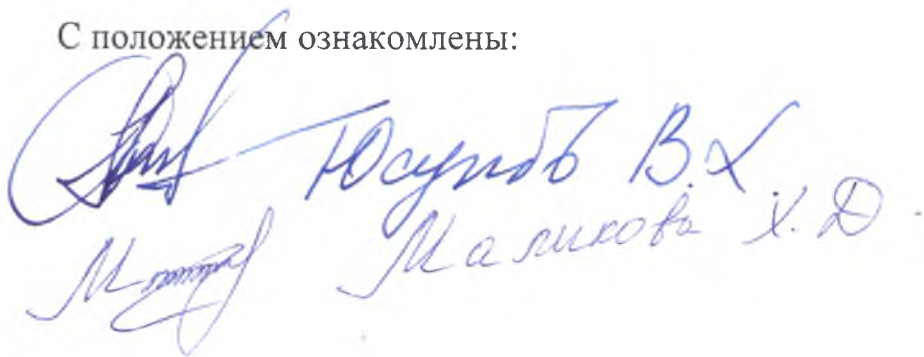 С положением ознакомлены:
Юсупов В.Х.
Маликова Х.Д.